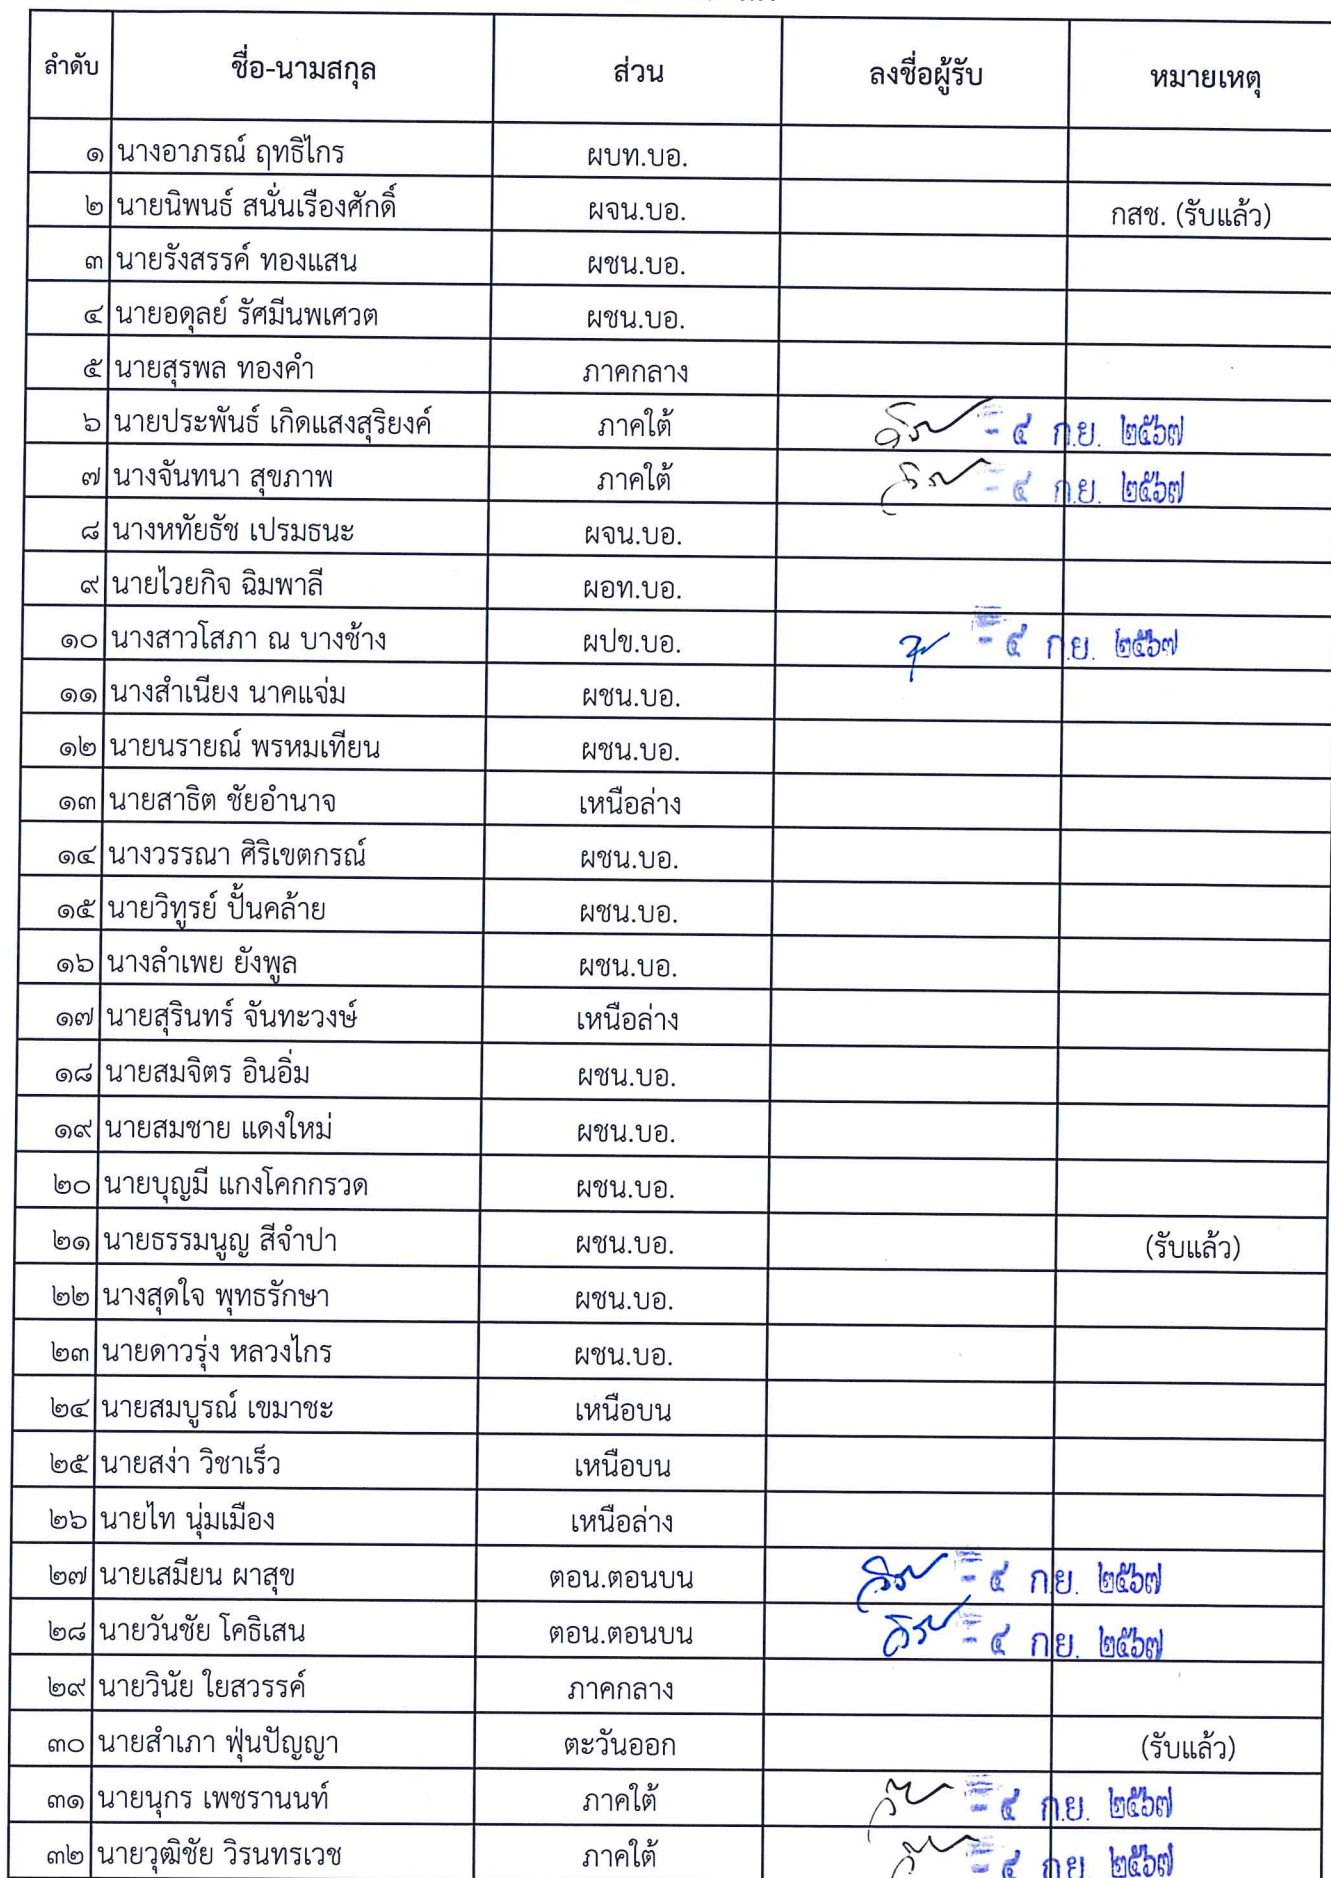 ลำดับ ชื่อ-นามสกุล ส่วน ลงชื่อผู้รับ หมายเหตุ
๑ นางอาภรณ์ ฤทธิไกร ผบท.บอ.
๒ นายนิพนธ์ สนั่นเรืองศักดิ์ ผจน.บอ. กสช. (รับแล้ว)
๓ นายรังสรรค์ ทองแสน ผชน.บอ.
๔ นายอดุลย์ รัศมีนพเศวต ผชน.บอ.
๕ นายสุรพล ทองคำ ภาคกลาง
๖ นายประพันธ์ เกิดแสงสุริยงค์ ภาคใต้ - ๔ ก.ย. ๒๕๖๗
๗ นางจันทนา สุขภาพ ภาคใต้ - ๔ ก.ย. ๒๕๖๗
๘ นางหทัยธัช เปรมธนะ ผจน.บอ.
๙ นายไวยกิจ ฉิมพาลี ผอท.บอ.
๑๐ นางสาวโสภา ณ บางช้าง ผปข.บอ. - ๔ ก.ย. ๒๕๖๗
๑๑ นางสำเนียง นาคแจ่ม ผชน.บอ.
๑๒ นายนรายณ์ พรหมเทียน ผชน.บอ.
๑๓ นายสาธิต ชัยอำนาจ เหนือล่าง
๑๔ นางวรรณา ศิริเขตกรณ์ ผชน.บอ.
๑๕ นายวิทูรย์ ปั้นคล้าย ผชน.บอ.
๑๖ นางลำเพย ยังพูล ผชน.บอ.
๑๗ นายสุรินทร์ จันทะวงษ์ เหนือล่าง
๑๘ นายสมจิตร อินอิ่ม ผชน.บอ.
๑๙ นายสมชาย แดงใหม่ ผชน.บอ.
๒๐ นายบุญมี แกงโคกกรวด ผชน.บอ.
๒๑ นายธรรมนูญ สีจำปา ผชน.บอ. (รับแล้ว)
๒๒ นางสุดใจ พุทธรักษา ผชน.บอ.
๒๓ นายดาวรุ่ง หลวงไกร ผชน.บอ.
๒๔ นายสมบูรณ์ เขมาชะ เหนือบน
๒๕ นายสง่า วิชาเร็ว เหนือบน
๒๖ นายไท นุ่มเมือง เหนือล่าง
๒๗ นายเสมียน ผาสุข ตอน.ตอนบน - ๔ ก.ย. ๒๕๖๗
๒๘ นายวันชัย โคธิเสน ตอน.ตอนบน - ๔ ก.ย. ๒๕๖๗
๒๙ นายวินัย ใยสวรรค์ ภาคกลาง
๓๐ นายสำเภา ฟุ่นปัญญา ตะวันออก (รับแล้ว)
๓๑ นายนุกร เพชรานนท์ ภาคใต้ - ๔ ก.ย. ๒๕๖๗
๓๒ นายวุฒิชัย วิรนทรเวช ภาคใต้ - ๔ ก.ย. ๒๕๖๗